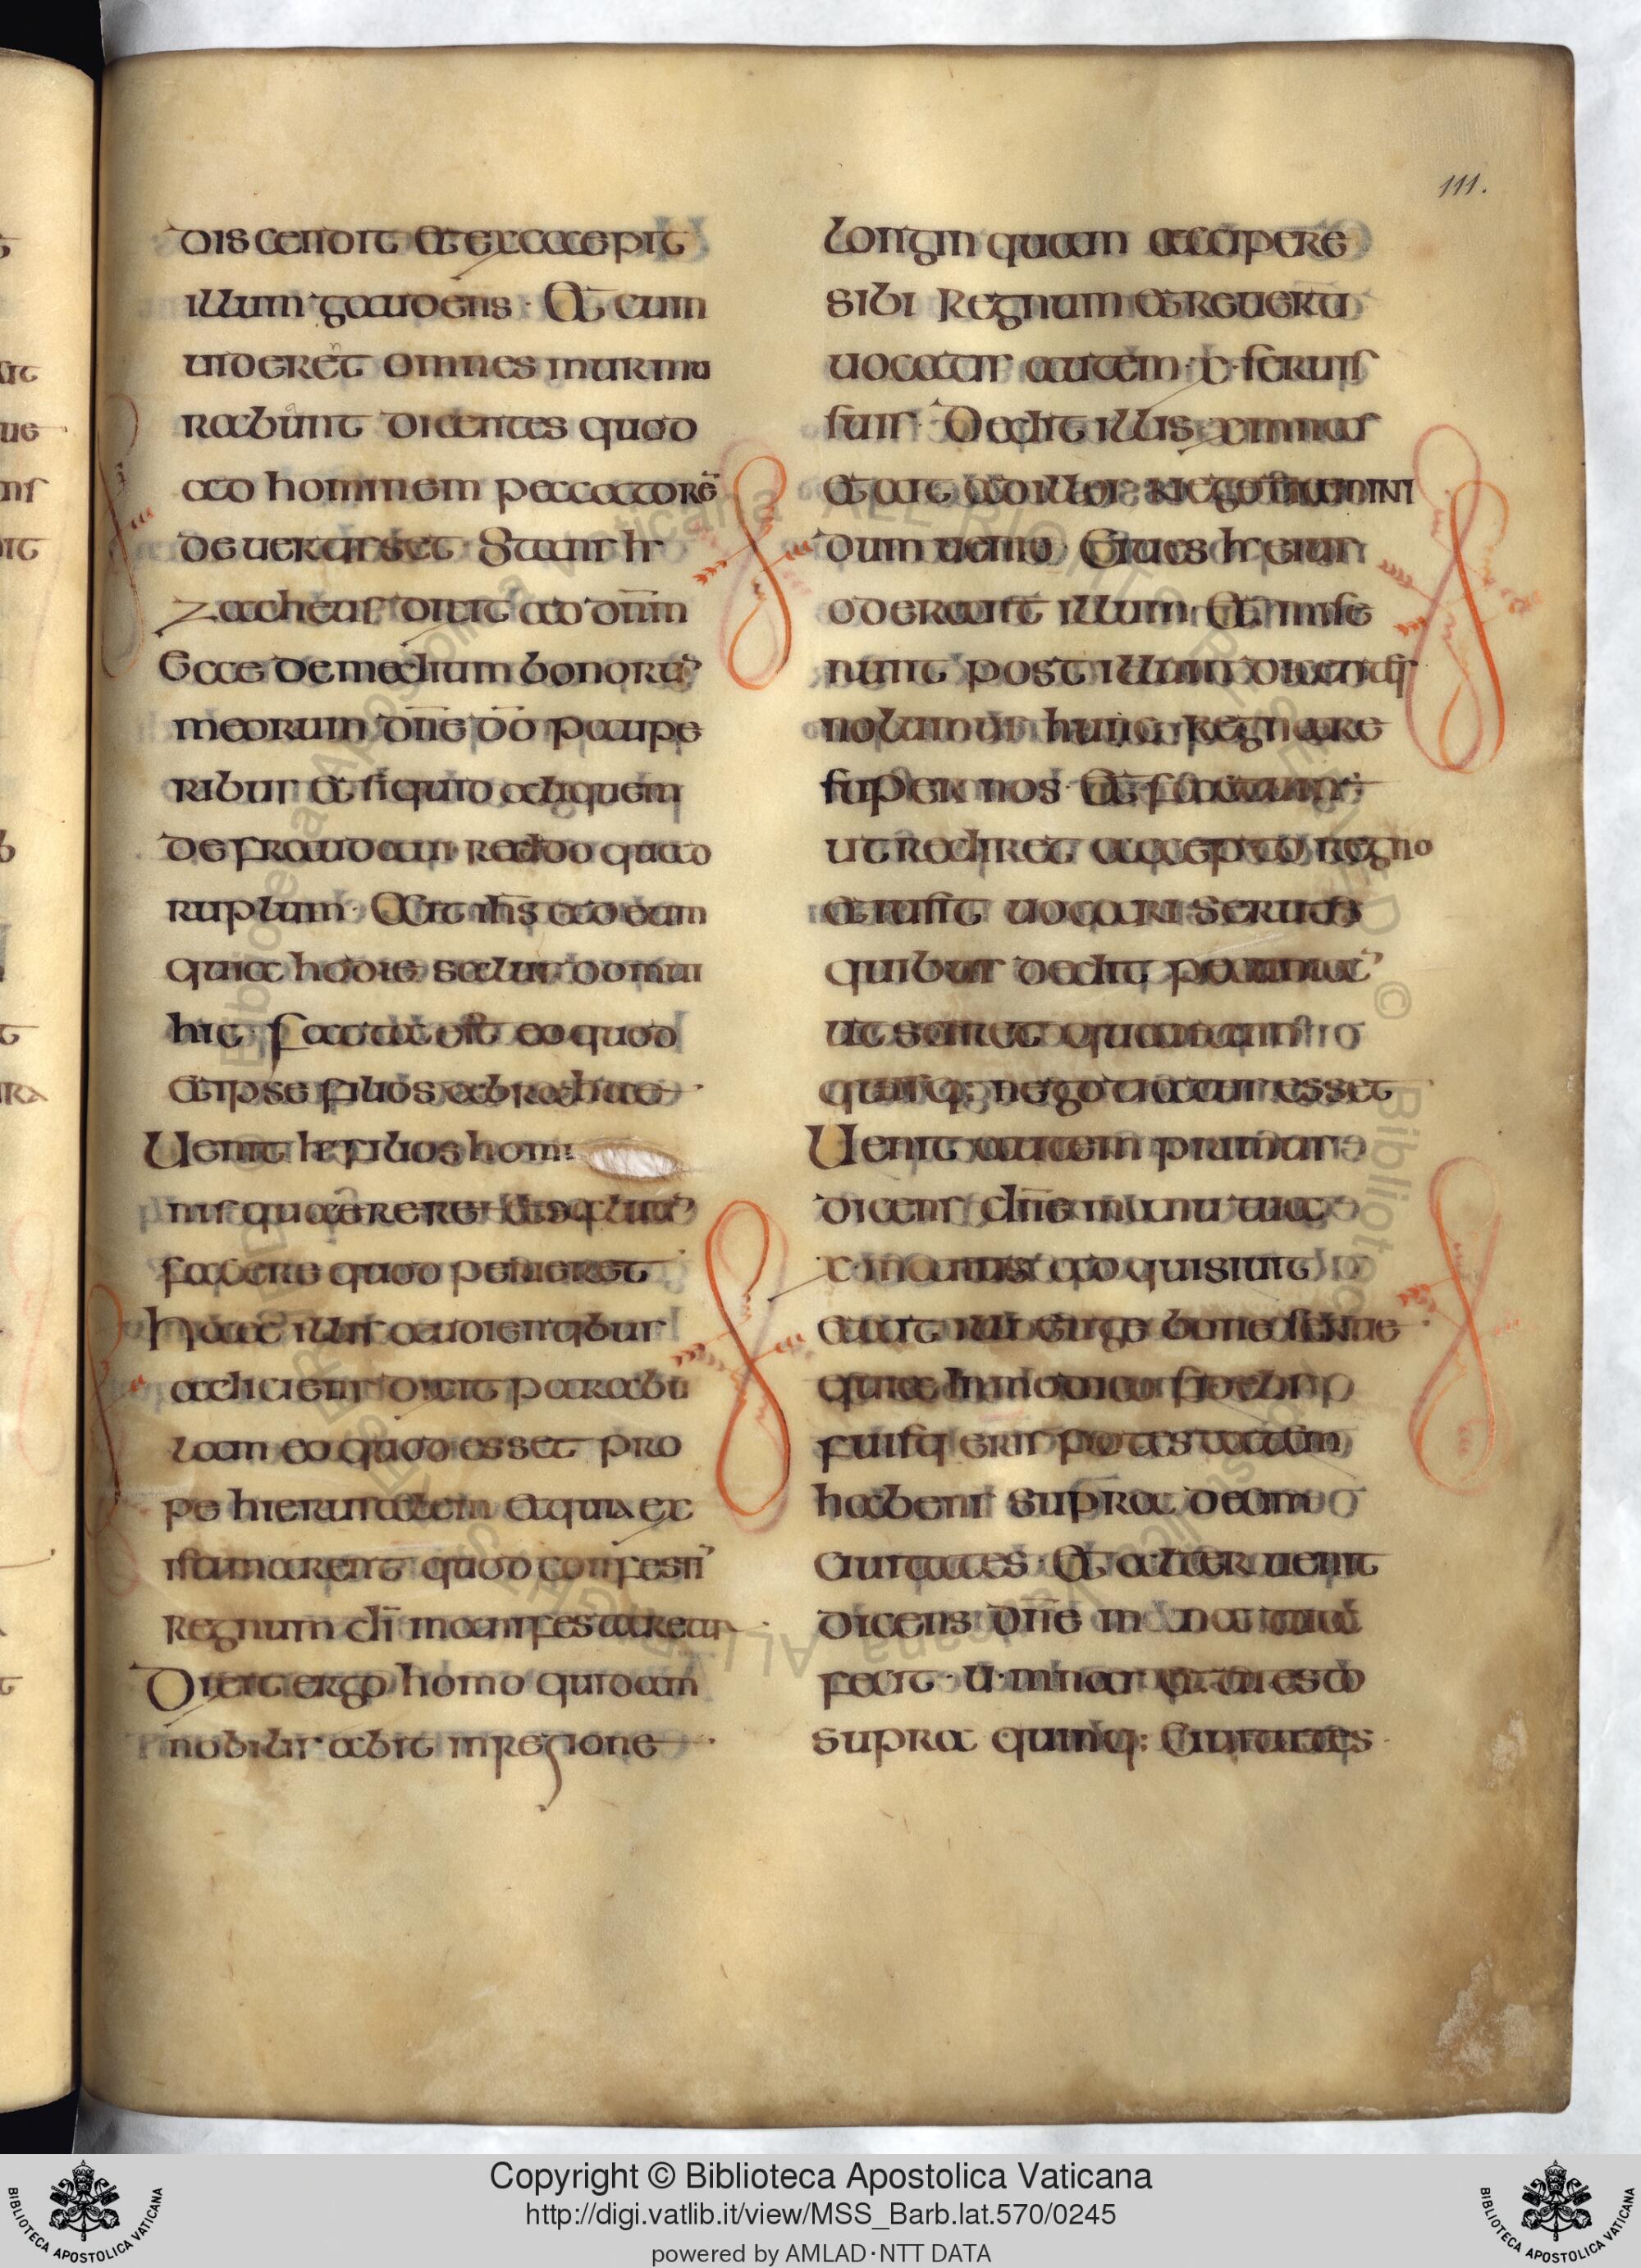 111.
discendit et excaepit
illum gaudens · Et cum
uideret omnes murmu
rabunt dicentes quod
ad hominem peccatorē
deuertisset · Stans hr
Zacheus dicit ad dnm
Ecce demedium bonorū
meorum dne do paupe
ribus et siquid aliquem
defraudaui reddo quad
ruplum · Ait ihs ad eum
quia hodie salus domui
huic facta est eo quod
et ipse filius abrachae
Uenit filius homi
nis quaerere
facere quod perieret
Haec illis audientibus
adiciens dicit parabu
lam eo quod esset pro
pe hierusalem et quia ex
istimarent quod confesti
regnum di manifestaretur
Dixit ergo homo quidam
nobilis abit in regione
longinquam accipere
sibi regnum et reuerti
uocatis autem · x · seruis
suis · Dedit illis x mnas
et ait ad illos negotiamini
dum uenio Ciues hr eius
oderant illum Et misse
runt post illum dicentes
nolumus hunc regnare
super nos · Et factum
ut rediret accepto regno
et iussit uocari seruos
quibus dedit
ut sciret quantum
quisq: negotiatus esset
Uenit autem primus
dicens dne mna tua
x · mnas adquisiuit
Ait illi Euge bone serue
quia in modico
fuisti eris potestatem
habens supra decem
ciuitates · Et alter uenit
dicens dne mna tua
fecit · u · mnas et tu esto
supra quinq: Ciuitates
Copyright © Biblioteca Apostolica Vaticana
http://digi.vatlib.it/view/MSS_Barb.lat.570/0245
powered by AMLAD·NTT DATA
BIBLIOTECA APOSTOLICA VATICANA
BIBLIOTECA APOSTOLICA VATICANA